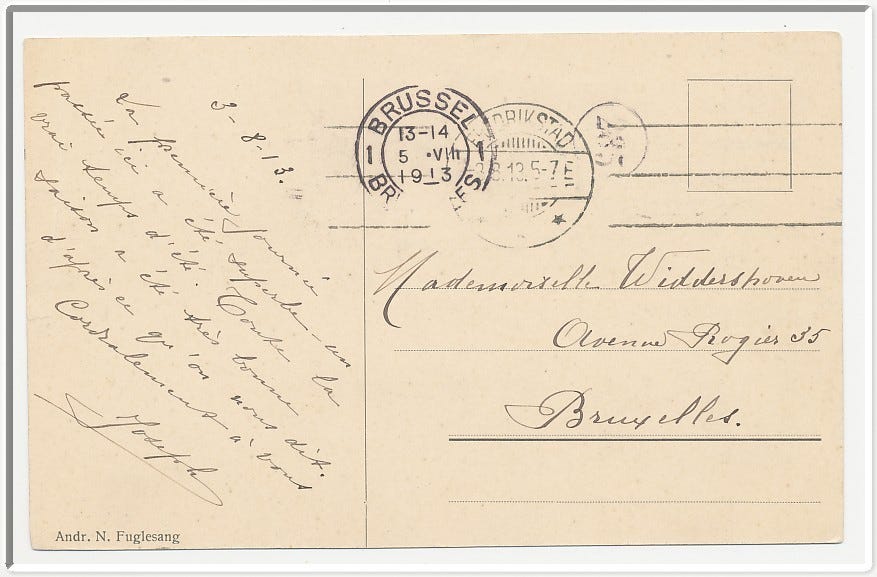 3-8-13.
La première journée
passée ici a été superbe - un
vrai temps d'été. Toute la
saison a été très bonne
d'après ce qu'on nous dit.
Cordialement à vous
Joseph
BRUSSEL
1 13-14 1
5 ·VIII
1913
DRIKSTAD
8.13.5-7E
Mademoiselle Widdershoven
Avenue Rogier 35
Bruxelles.
Andr. N. Fuglesang